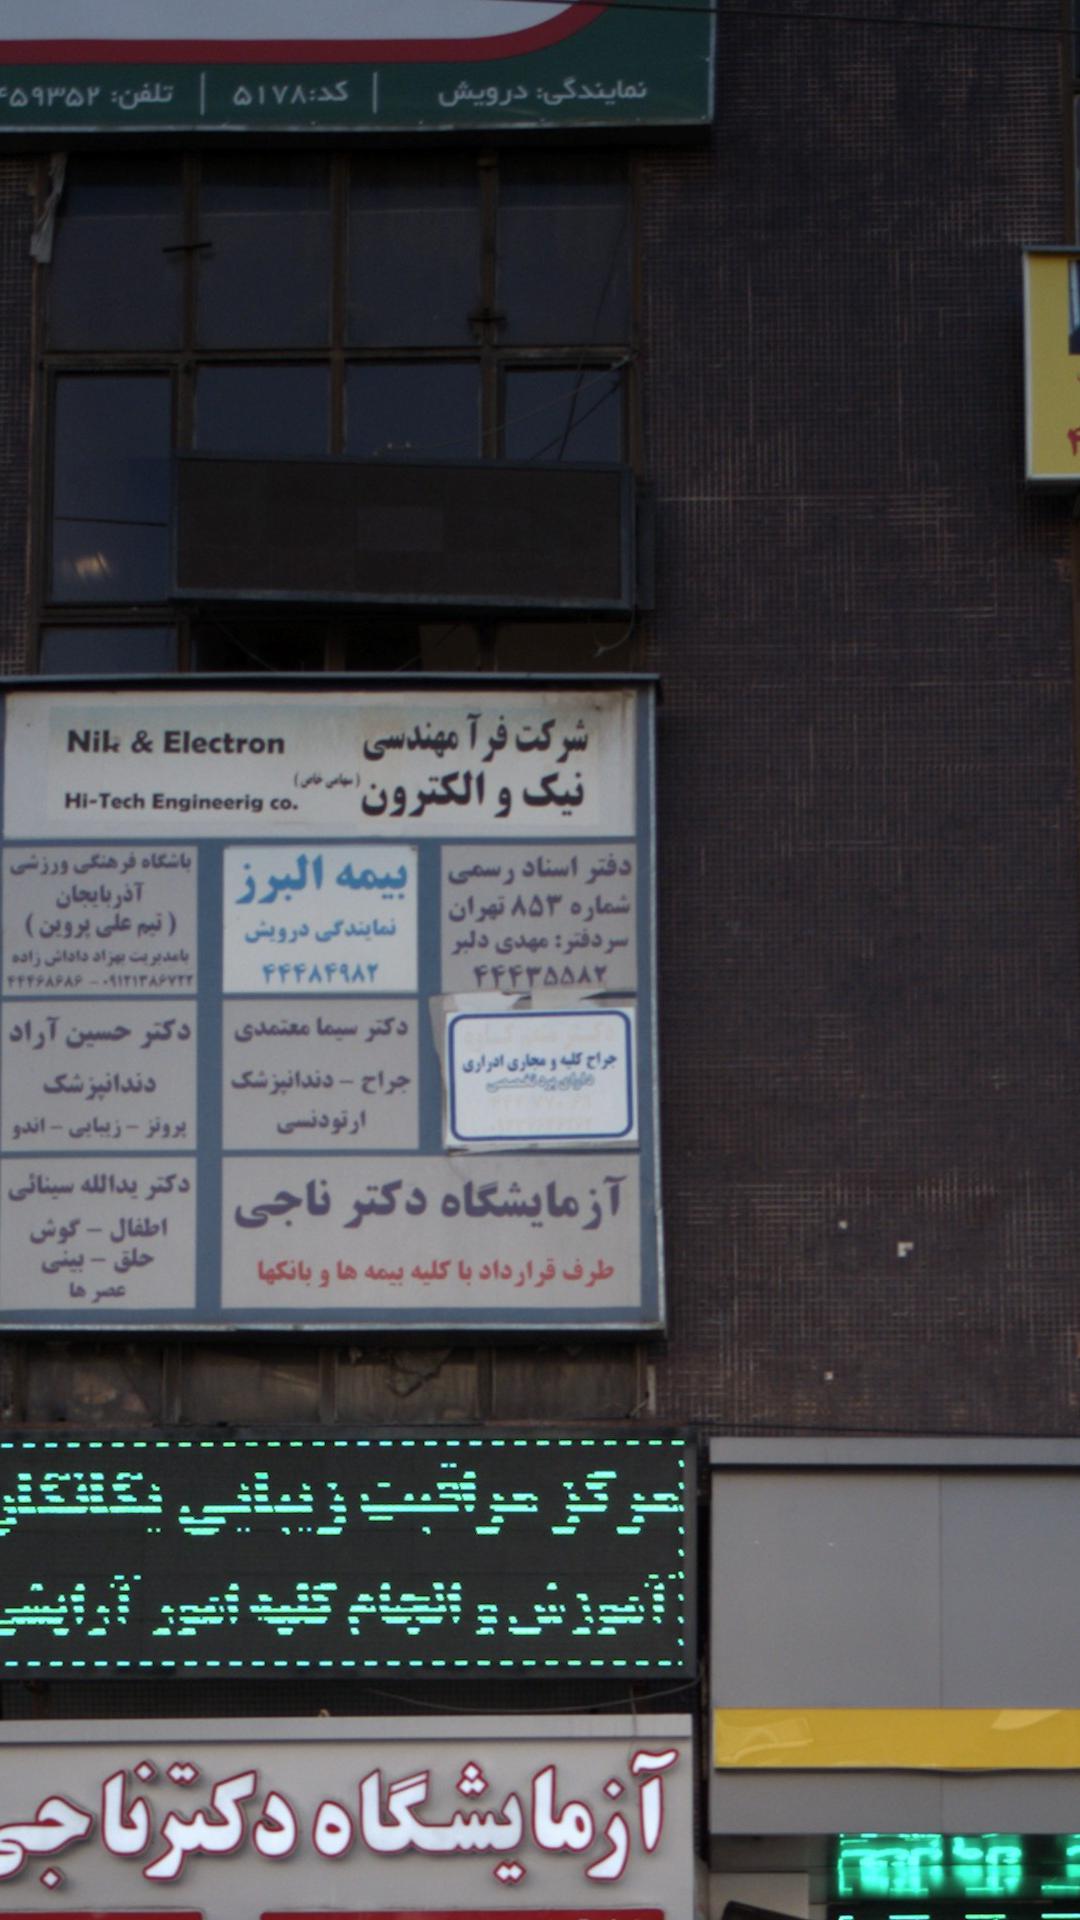 نمایندگی: درویش | کد: ۵۱۷۸ | تلفن: ۴۵۹۳۵۲
شرکت فرآ مهندسی
نیک و الکترون (سهامی خاص)
Nik & Electron
Hi-Tech Engineerig co.
دفتر اسناد رسمی
شماره ۸۵۳ تهران
سردفتر: مهدی دلبر
۴۴۴۳۵۵۸۲
بیمه البرز
نمایندگی درویش
۴۴۴۸۴۹۸۲
باشگاه فرهنگی ورزشی
آذربایجان
( تیم علی پروین )
بامدیریت بهزاد داداش زاده
۴۴۴۶۸۶۸۶ - ۰۹۱۲۱۳۸۶۷۲۲
جراح کلیه و مجاری ادراری
دارای بورد تخصصی
دکتر سیما معتمدی
جراح - دندانپزشک
ارتودنسی
دکتر حسین آراد
دندانپزشک
پروتز - زیبایی - اندو
آزمایشگاه دکتر ناجی
طرف قرارداد با کلیه بیمه ها و بانکها
دکتر یدالله سینائی
اطفال - گوش
حلق - بینی
عصر ها
مرکز مراقبت زیبایی
آموزش و انجام کلیه امور آرایشی
آزمایشگاه دکترناجی